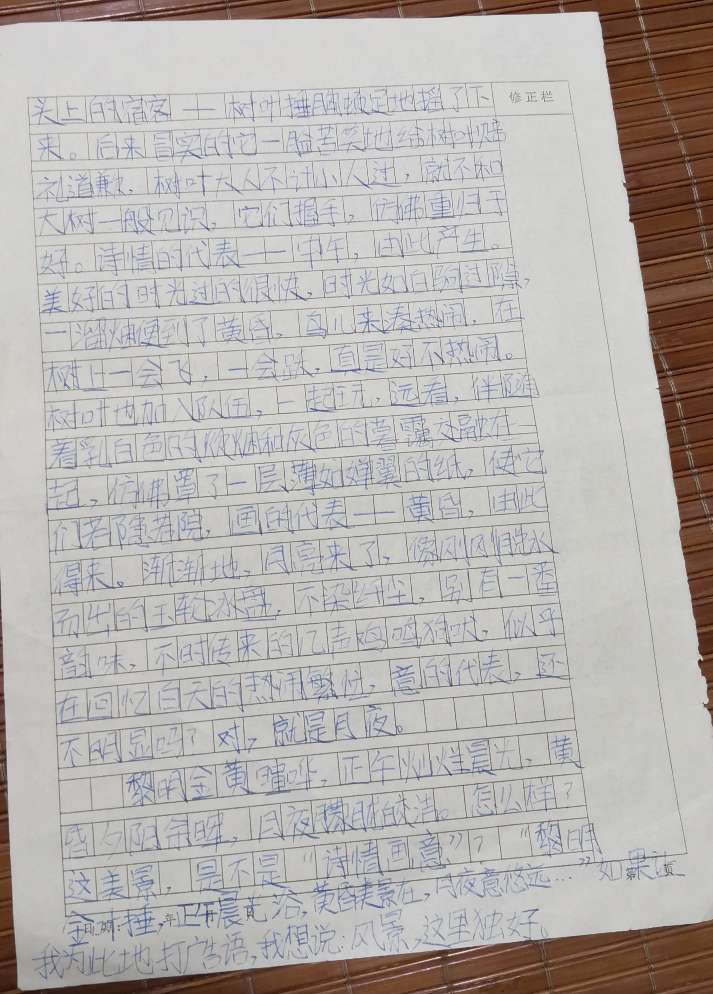 头上的宿客——树叶捶胸顿足地摇了下
修正栏
来。后来冒实的它一脸苦笑地给树叶赔
礼道歉，树叶大人不计小人过，就不和
大树一般见识，它们握手，仿佛重归于
好。诗情的代表——中午，由此产生。
美好的时光过的很快，时光如白驹过隙，
一溜烟便到了黄昏，鸟儿来凑热闹，在
树上一会飞，一会跃，真是好不热闹。
树叶也加入队伍，一起玩，远看，伴随
着乳白色的炊烟和灰色的暮霭交融在一
起，仿佛置了一层薄如蝉翼的纸，使它
们若隐若院，画的代表——黄昏，由此
得来。渐渐地，月亮来了，像刚刚脱水
而出的玉软冰盘，不染纤尘，另有一番
韵味，不时传来的几声鸡鸣狗吠，似乎
在回忆白天的热闹繁忙，意的代表，还
不明显吗？对，就是月夜。
黎明金黄璀璨，正午灿烂晨光，黄
昏夕阳余晖，月夜朦胧皎洁。怎么样？
这美景，是不是“诗情画意”？“黎明
金捶，正午晨光浴，黄昏美景在，月夜意悠远…”如果让
我为此地打广告语，我想说：风景，这里独好。